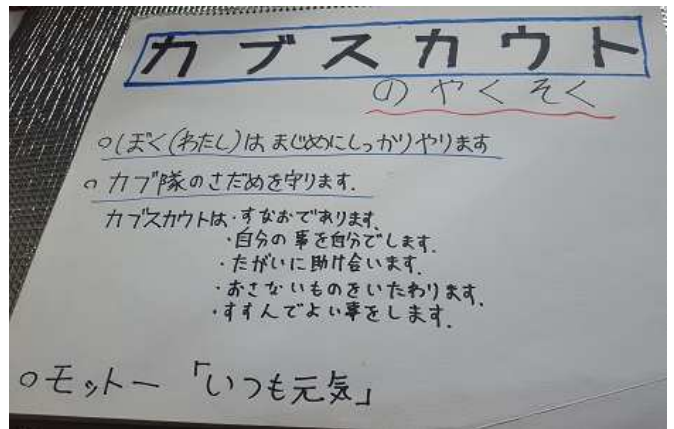 カブスカウト
のやくそく
○ぼく(わたし)はまじめにしっかりやります
○カブ隊のさだめを守ります.
カブスカウトは・すなおであります.
・自分の事を自分でします.
・たがいに助け合います.
・おさないものをいたわります.
・すすんでよい事をします.
○モットー「いつも元気」